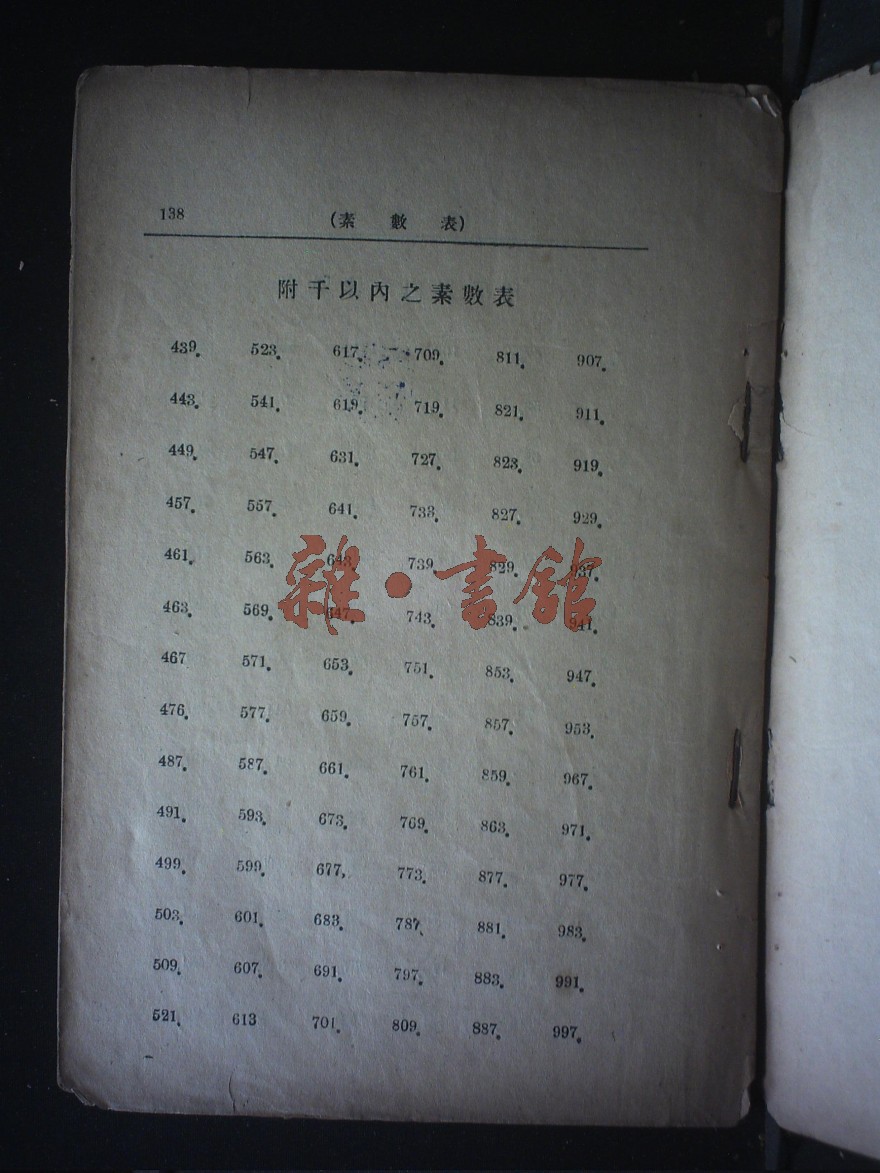 138
(素 數 表)
附千以內之素數表
439. 523. 617. 709. 811. 907.
443. 541. 619. 719. 821. 911.
449. 547. 631. 727. 823. 919.
457. 557. 641. 733. 827. 929.
461. 563. 643. 739. 829. 937.
雜·書館
463. 569. 647. 743. 839. 941.
467 571. 653. 751. 853. 947.
476. 577. 659. 757. 857. 953.
487. 587. 661. 761. 859. 967.
491. 593. 673. 769. 863. 971.
499. 599. 677, 773. 877. 977.
503. 601. 683. 787. 881. 983.
509. 607. 691. 797. 883. 991.
521. 613 701. 809. 887. 997.